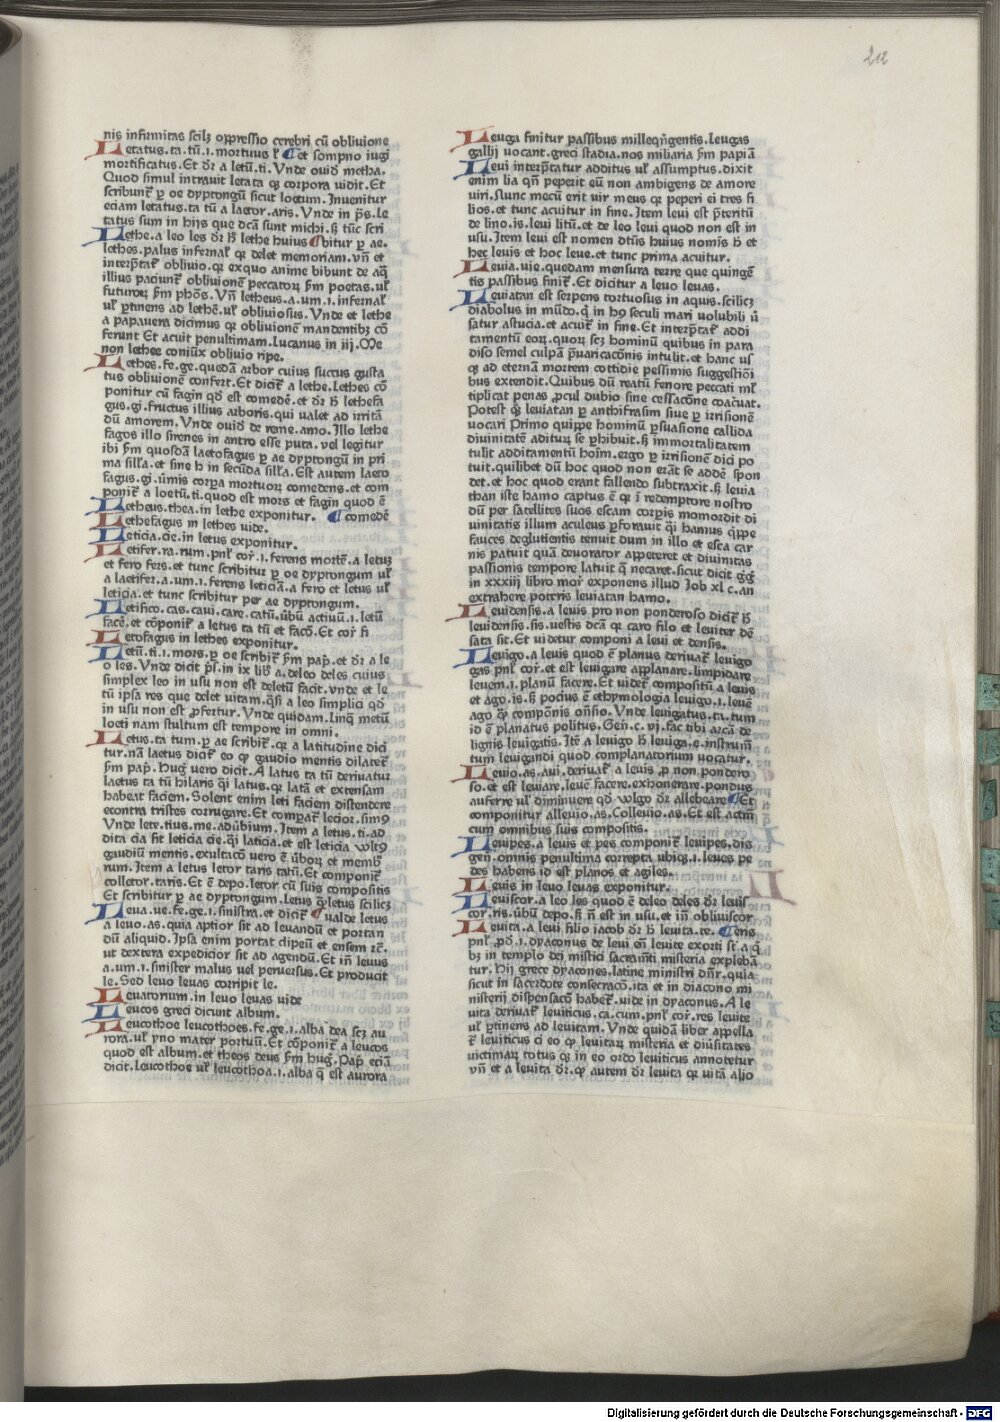 212
nis infirmitas scilꝫ oppressio cerebri cū obliuione
Letatus.ta.tū.i.mortuus ł et sompno iugi
mortificatus. Et dr̄ a letū.ti. Vnde ouid metha.
Quod simul intrauit letata qꝫ corpora uidit. Et
scribunt̄ ꝑ oe dyptongū sicut loetum. Inuenitur
eciam letatus.ta tū a laetor.aris. Vnde in ps. Le
tatus sum in hijs que dcā sunt michi. sꝫ tūc scri
Lethe.a leo les dr̄ h̄ lethe huius bitur ꝑ ae.
lethes.palus infernał qꝫ delet memoriam. vn̄ et
interp̄tat̄ obliuio. qꝫ exquo anime bibunt de aq̄
illius paciunt̄ obliuionē peccatoꝝ ẜm poetas. uł
futuroꝝ ẜm phōs. Vn̄ letheus.a.um.i.infernał
uł ꝑtinens ad lethē.uł obliuiosus. Vnde et lethe
a papauera dicimus qꝫ obliuionē mandentibꝫ cō
ferunt Et acuit penultimam. Lucanus in iij. Me
non lethee coniūx obliuio ripe.
Lethes.fe.ge.quedā arbor cuius succus gusta
tus obliuionē confert. Et dicit̄ a lethe. Lethes cō
ponitur cū fagin qd̄ est comedē. et dr̄ h̄ lethefa
gus.gi.fructus illius arboris. qui ualet ad irritā
dū amorem. Vnde ouid de reme.amo. Illo lethe
fagos illo sirenes in antro esse puta. vel legitur
ibi ẜm quosdā laetofagus ꝑ ae dyptongū in pri
ma silła. et sine h in secūda silła. Est autem laeto
fagus.gi.
ponit̄ a loetū.ti.quod est mors et fagin quod ē
Letheus.thea.in lethe exponitur. comedē
Lethefagus in lethes vide.
Leticia.cie.in letus exponitur.
Letifer.ra.rum.pnł cor̄.i.ferens mortē.a letuꝫ
et fero fers. et tunc scribitur ꝑ oe dyptongum uł
a laetifer.a.um.i.ferens leticiā.a fero et letus uł
leticia. et tunc scribitur per ae dyptongum.
Letifico.cas.caui.care.catū.ūbū actiuū.i.letū
facē. et cōponit̄ a letus ta tū et facō. Et cor̄ fi
Letofagus in lethes exponitur.
Letū.ti.i.mors. ꝑ oe scribit̄ ẜm pap̄. et dr̄ a le
o les. Vnde dicit p̄s. in ix lib̄ a.deleo deles cuius
simplex leo in usu non est deletū facit. vnde et le
tū ipsa res que delet uitam. q̄si a leo simplici qd̄
in usu non est ꝓfertur. Vnde quidam. Linq̄ metū
loeti nam stultum est tempore in omni.
Letus.ta tum. ꝑ ae scribit̄. qꝫ a latitudine dici
tur. nā laetus dicit̄ eo qꝫ gaudio mentis dilatet̄
ẜm pap̄. Huḡ uero dicit. A latus ta tū deriuatur
laetus ta tū hilaris q̄i latus. qꝫ latā et extensam
habeat faciem. Solent enim leti faciem distendere
econtra tristes corrugare. Et comparat̄ lecior.sim9
Vnde lete.tius.me.adūbium. Item a letus.ti.ad
dita cia fit leticia cie. q̄i laticia. et est leticia wlt9
gaudiū mentis. exultacō uero ē ūboꝝ et memb
rum. Item a letus letor taris tatū. Et componit̄
colletor.taris. Et ē depo. letor cū suis compositis
Et scribitur ꝑ ae dyptongum. Letus q̄r letus scilicꝫ
Leua.ue.fe.ge.i.sinistra. et dicit̄ ualde letus
a leuo.as. quia aptior sit ad leuandū et portan
dū aliquid. Ipsa enim portat clipeū et ensem ⁊c̄.
ut dextera expedicior sit ad agendū. Et in̄ leuus
a.um.i.sinister malus uel peruersus. Et producit
le. Sed leuo leuas corripit le.
Leuatorium.in leuo leuas uide
Leucos greci dicunt album.
Leucothoe leucothoes.fe.ge.i.alba dea scꝫ au
rora. uł yno mater portuū. Et cōponit̄ a leucos
quod est album. et theos deus ẜm huḡ. Pap̄ eciā
dicit. Leucothoe uł leucothoa.i.alba q̄ est aurora
Leuga finitur passibus milleqn̄gentis. Leugas
gallij uocant. greci stadia. nos miliaria ẜm papiā
Leui interp̄tatur additus uł assumptus. dixit
enim lia qn̄ peperit eū non ambigens de amore
uiri. Nunc mecū erit uir meus qꝫ peperi ei tres fi
lios. et tunc acuitur in fine. Item leui est p̄teritū
de lino.is.leui litū. et de leo leui quod non est in
usu. Item leui est nomen dtūs huius nomīs h̄ et
hec leuis et hoc leue. et tunc prima acuitur.
Leuia.uie.quedam mensura terre que quingē
tis passibus finit̄. Et dicitur a leuo leuas.
Leuiatan est serpens tortuosus in aquis. scilicꝫ
diabolus in mūdo. q̄ in h9 seculi mari uolubili ū
satur astucia. et acuit̄ in fine. Et interp̄tat̄ addi
tamentū eoꝝ. quoꝝ scꝫ hominū quibus in para
diso semel culpā p̄uaricacōnis intulit. et hanc us
qꝫ ad eternā mortem cottidie pessimis suggestiōi
bus extendit. Quibus dū reatū fenore peccati mł
tiplicat penas ꝓcul dubio sine cessacōne coacuat.
Potest qꝫ leuiatan ꝑ anthifrasim siue ꝑ irrisionē
uocari Primo quippe hominū ꝑsuasione callida
diuinitatē adituꝝ se ꝑhibuit. sꝫ immortalitatem
tulit additamentū hoīm. ergo ꝑ irrisionē dici po
tuit. quilibet dū hoc quod non erāt se addē spon
det. et hoc quod erant fallendo subtraxit. sꝫ leuia
than iste hamo captus ē qꝫ ī redemptore nostro
dū per satellites suos escam corꝑis momordit di
uinitatis illum aculeus ꝑforauit q̄i hamus q̄ippe
fauces deglutientis tenuit dum in illo et esca car
nis patuit quā deuorator appeteret et diuinitas
passionis tempore latuit q̄ necaret. sicut dicit ḡḡ
in xxxiij libro mor̄ exponens illud Job xl c. an
extrahere poteris leuiatan hamo.
Leuidensis.a leuis pro non ponderoso dicit̄ h̄
leuidensis.sis.uestis dcā qꝫ raro filo et leuiter dē
sata sit. Et uidetur componi a leui et densis.
Leuigo.a leuis quod ē planus deriuat̄ leuigo
gas pnł cor̄. et est leuigare applanare. limpidare
leuem.i.planū facere. Et uidet̄ compositū a leuis
et ago.is. sꝫ pocius ē ethymologia leuigo.i.leuē
ago q̄ꝫ compōnis on̄sio. Vnde leuigatus.ta.tum
id ē planatus politus. Gen̄.c.vj.fac tibi arcā de
lignis leuigatis. Itē a leuigo h̄ leuiga.e.instrum̄
tum leuigandi quod complanatorium uocatur.
Leuio.as.aui.deriuat̄ a leuis. ꝓ non pondero
so. et est leuiare. leue facere. exhonerare. pondus
auferre uł diminuere qd̄ wlgo dr̄ allebeare Et
componitur alleuio.as. Colleuio.as. Et est actiū
cum omnibus suis compositis.
Leuipes.a leuis et pes componit̄ leuipes.dis
gen̄.omnis penultima correpta ubiqꝫ.i.leues pe
des habens id est planos et agiles.
Leuis in leuo leuas exponitur.
Leuiscor.a leo les quod ē deleo deles dr̄ leuis
cor.ris.ūbū depo. sꝫ n̄ est in usu. et in̄ obliuiscor
Leuita.a leui filio iacob dr̄ h̄ leuita.te. eris
pnł ꝓd̄.i.dyaconus de leui em̄ leuite exorti st̄ a q̄
bꝫ in templo dei mistici sacram̄ti misteria explebā
tur. Hij grece dyacones. latine ministri dn̄r. quia
sicut in sacerdote consecracō. ita et in diacono mi
nisterij dispensacō habet̄. uide in dyaconus. A le
uita deriuat̄ leuiticus.ca.cum.pnł cor̄. res leuite
uł ꝑtinens ad leuitam. Vnde quidā liber appella
t̄ leuiticus ci eo qꝫ leuitaꝝ misteria et diūsitates
uictimaꝝ totus qꝫ in eo ordo leuiticus annotetur
vn̄ et a leuita dr̄. qꝫ autem dr̄ leuita qꝫ uitā alio
Digitalisierung gefördert durch die Deutsche Forschungsgemeinschaft - DFG